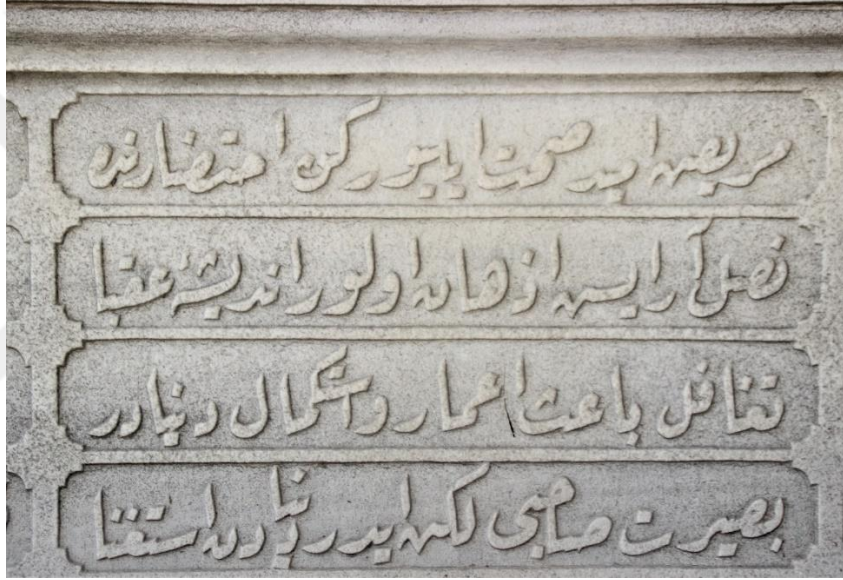 مریض امید صحت ایلیور کن احتضارنده
نصل آرایش اذهان اولور اندیشهٔ عقبا
تغافل باعث اعمار و استكمال دنیادر
بصیرت صاحبی لكن ایدر دنیادن استغنا